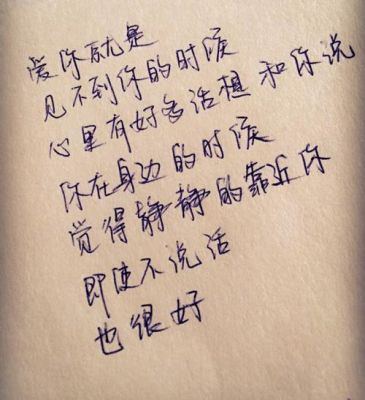 爱你就是
见不到你的时候
心里有好多话想和你说
你在身边的时候
觉得静静的靠近你
即使不说话
也很好